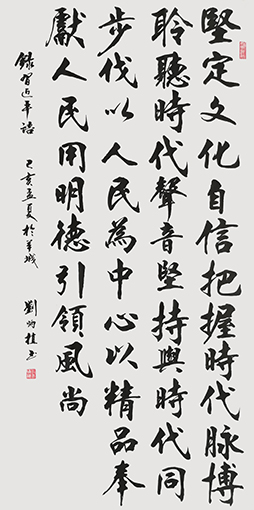 堅定文化自信把握時代脉博
聆聽時代聲音堅持與時代同
步伐以人民為中心以精品奉
獻人民用明德引領風尚
錄習近平語 己亥孟夏於羊城 劉炳桂書